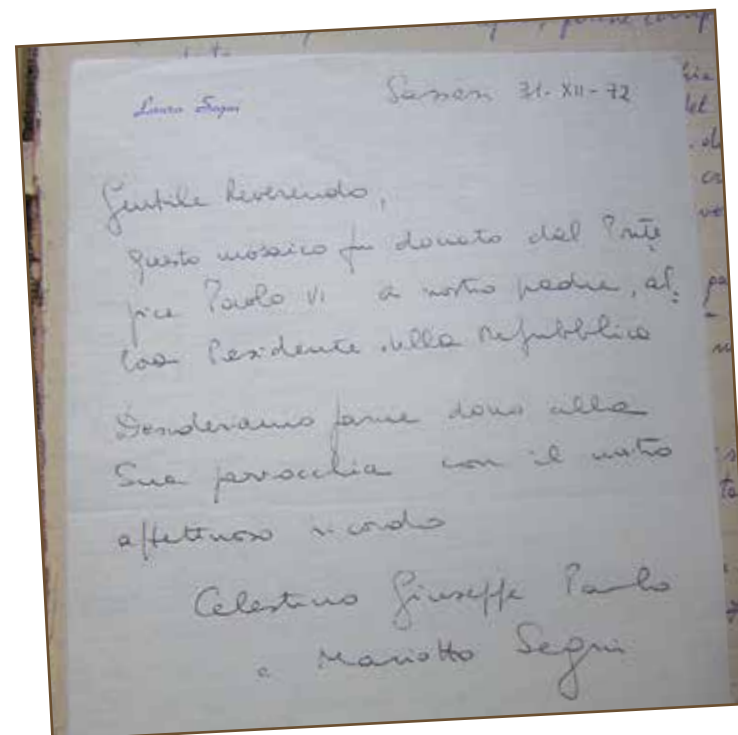 Laura Segni
Sassari 31-XII-72
Gentile Reverendo,
questo mosaico fu donato dal Ponte
fice Paolo VI a nostro padre, al
lora Presidente della Repubblica
Desideriamo farne dono alla
Sua parrocchia con il nostro
affettuoso ricordo
Celestino Giuseppe Paolo
e Mariotto Segni